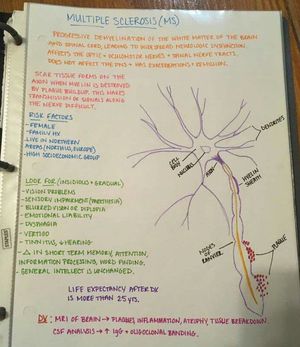 MULTIPLE SCLEROSIS (MS)
PROGRESSIVE DEMYELINATION OF THE WHITE MATTER OF THE BRAIN
AND SPINAL CORD, LEADING TO WIDESPREAD NEUROLOGIC DYSFUNCTION.
AFFECTS THE OPTIC + OCULOMOTOR NERVES + SPINAL NERVE TRACTS.
DOES NOT AFFECT THE PNS + HAS EXACERBATIONS + REMISSION.
SCAR TISSUE FORMS ON THE
AXON WHEN MYELIN IS DESTROYED
BY PLAQUE BUILDUP. THIS MAKES
TRANSMISSION OF SIGNALS ALONG
THE NERVE DIFFICULT.
RISK FACTORS
-FEMALE
-FAMILY HX
-LIVE IN NORTHERN
AREAS (NORTH US, EUROPE)
-HIGH SOCIOECONOMIC GROUP
DENDRITES
CELL BODY
NUCLEUS
AXON
MYELIN
SHEATH
NODES OF
RANVIER
PLAQUE
LOOK FOR (INSIDIOUS + GRADUAL)
-VISION PROBLEMS
-SENSORY IMPAIRMENT (PARESTHESIA)
-BLURRED VISION OR DIPLOPIA
-EMOTIONAL LIABILITY
-DYSPHAGIA
-VERTIGO
-TINNITUS, ↓ HEARING
-Δ IN SHORT TERM MEMORY, ATTENTION,
INFORMATION PROCESSING, WORD FINDING.
-GENERAL INTELLECT IS UNCHANGED.
LIFE EXPECTANCY AFTER DX
IS MORE THAN 25 YRS.
DX: MRI OF BRAIN → PLAQUES, INFLAMMATION, ATROPHY, TISSUE BREAKDOWN.
CSF ANALYSIS → ↑ IgG + OLIGOCLONAL BANDING.